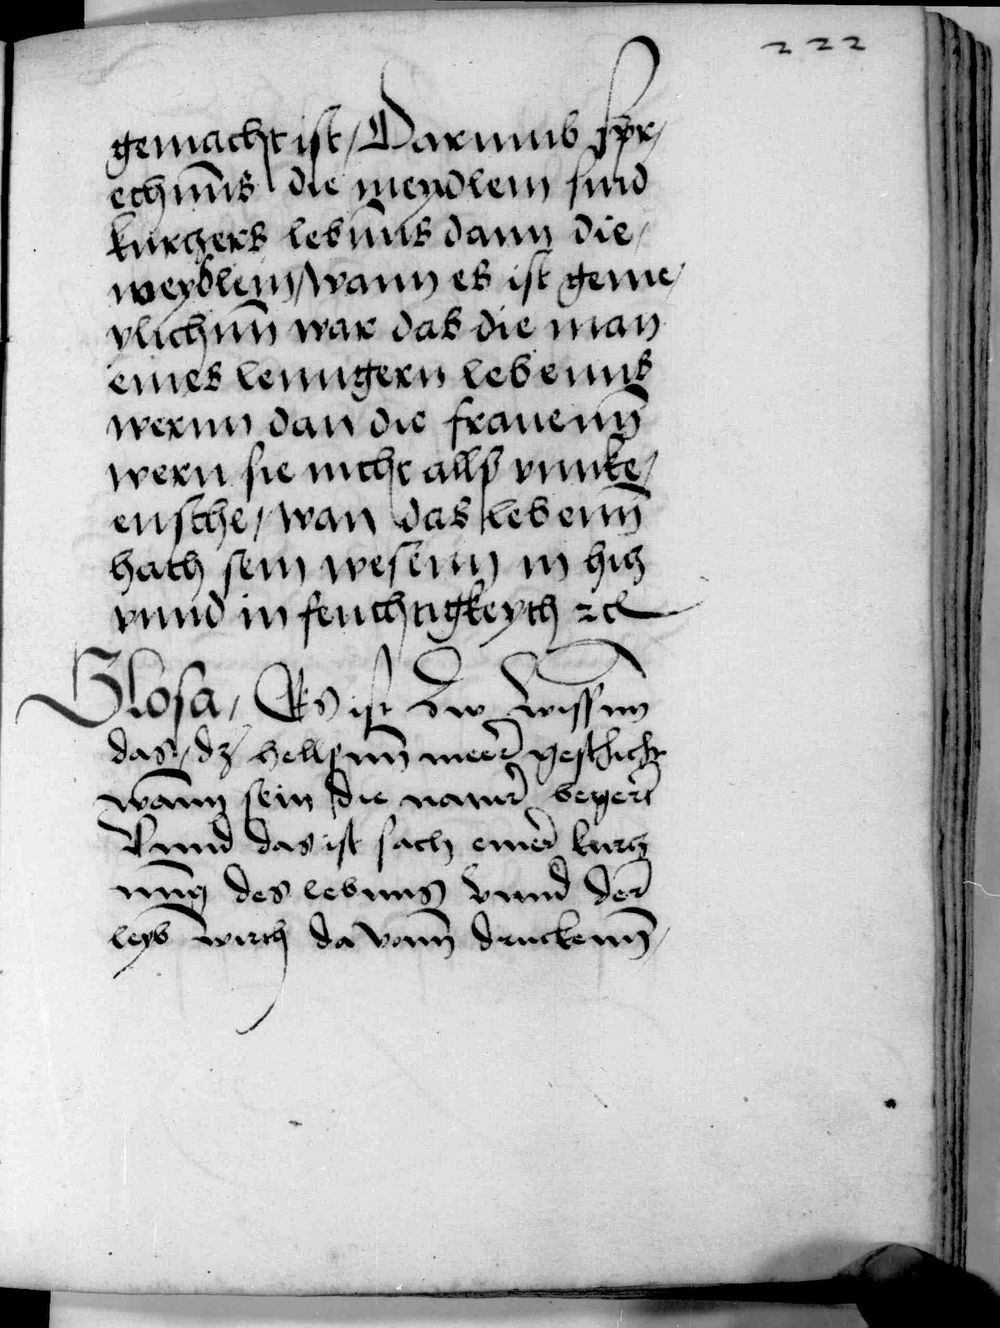 222
gemacht ist / Darumb spr/
echnns die meydlein sind
kurczers lebnns dann die /
weyblein / wann es ist geme /
ylichnn war das die man
eines lenngern lebenns
wernn dan die frauenn
wern sie nicht allso vnnke /
eusche / wan das lebenn
hath sein wesenn in hicz
vnnd in feuchtigkeyth ꝛc
Glosa / Es ist zw wissenn
das / dz hellsnn meer geschicht
wann sein die natur begert
Vnnd das ist sach einer kurcz
nng des lebnns vnnd der
leyb wirth da vonn druckenn /